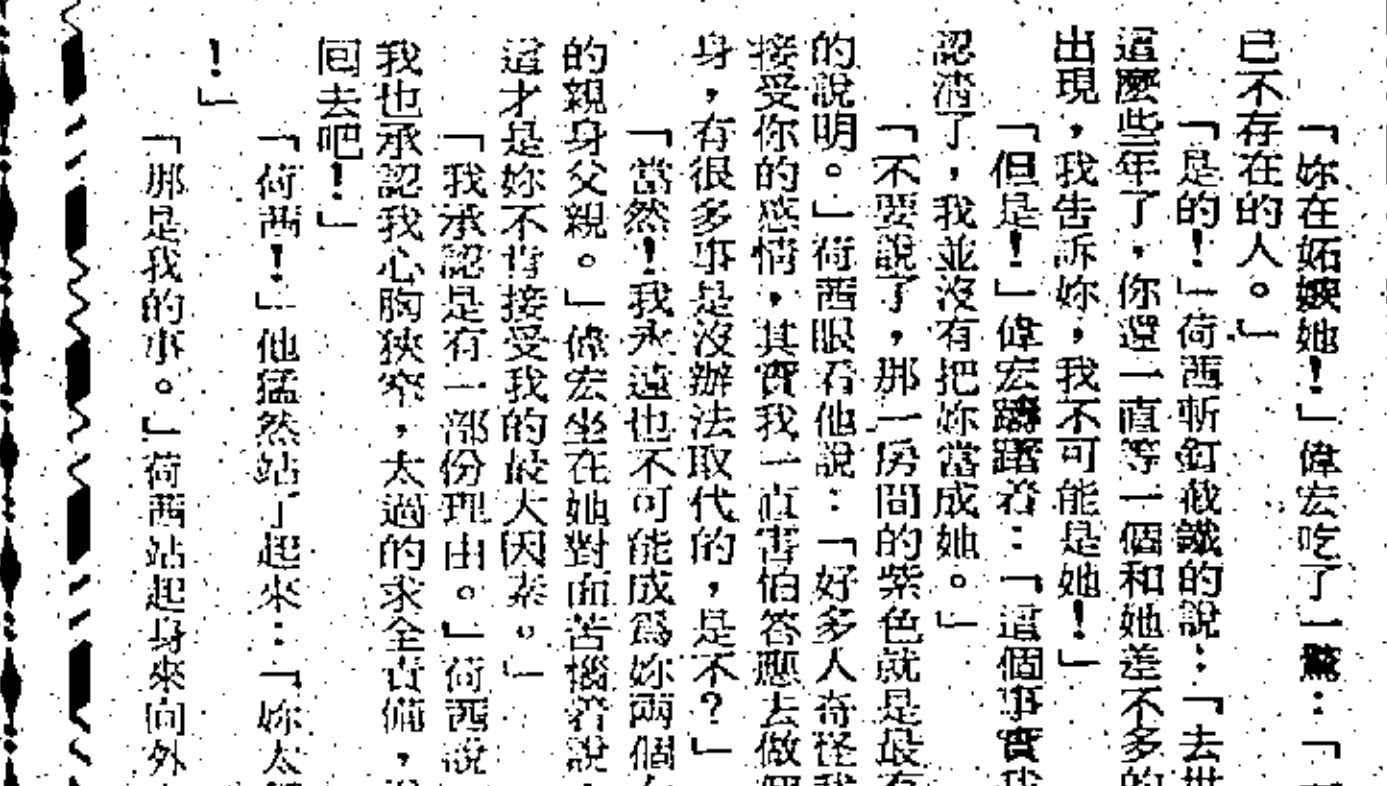 「妳在妬嫉她！」偉宏吃了一驚：「
已不存在的人。」
「是的！」荷西斬釘截鐵的說：「去世
這麼些年了，你還一直等一個和她差不多的
出現，我告訴妳，我不可能是她！」
「但是！」偉宏躊躇着：「這個事實我
認清了，我並沒有把妳當成她。」
「不要說了，那一房間的紫色就是最有
的說明。」荷茜眼看他說：「好多人奇怪我
接受你的感情，其實我一直害怕答應去做個
身，有很多事是沒辦法取代的，是不？」
「當然！我永遠也不可能成爲妳兩個
的親身父親。」偉宏坐在她對面苦惱着說
這才是妳不肯接受我的最大因素。」
「我承認是有一部份理由。」荷西說
我也承認我心胸狹窄，太過的求全責備，
回去吧！」
「荷茜！」他猛然站了起來：「妳太
！」
「那是我的事。」荷茜站起身來向外